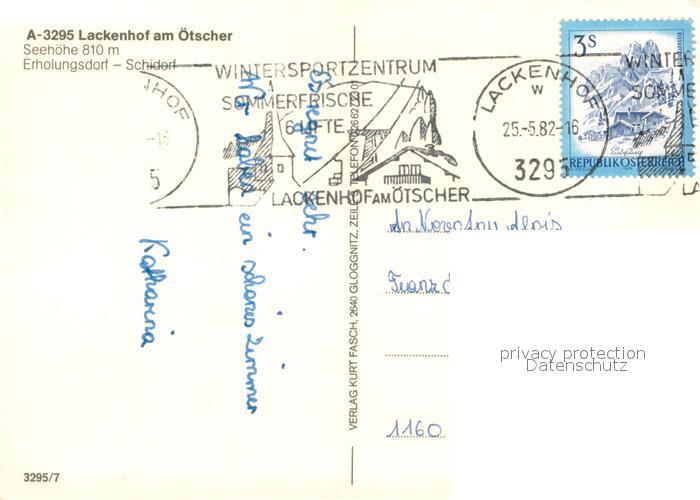 A-3295 Lackenhof am Ötscher
Seehöhe 810 m
Erholungsdorf – Schidorf
WINTERSPORTZENTRUM
SOMMERFRISCHE
6 LIFTE
LACKENHOF AM ÖTSCHER
LACKENHOF
W
25.-5.82-16
3295
3S
REPUBLIK ÖSTERREICH
WINTER
SOMME
sehr.
Wir haben ein schönes Zimmer
Katharina
VERLAG KURT FASCH, 2640 GLOGGNITZ, ZEILE
An Novotny Alois
Franz
1160
privacy protection
Datenschutz
3295/7